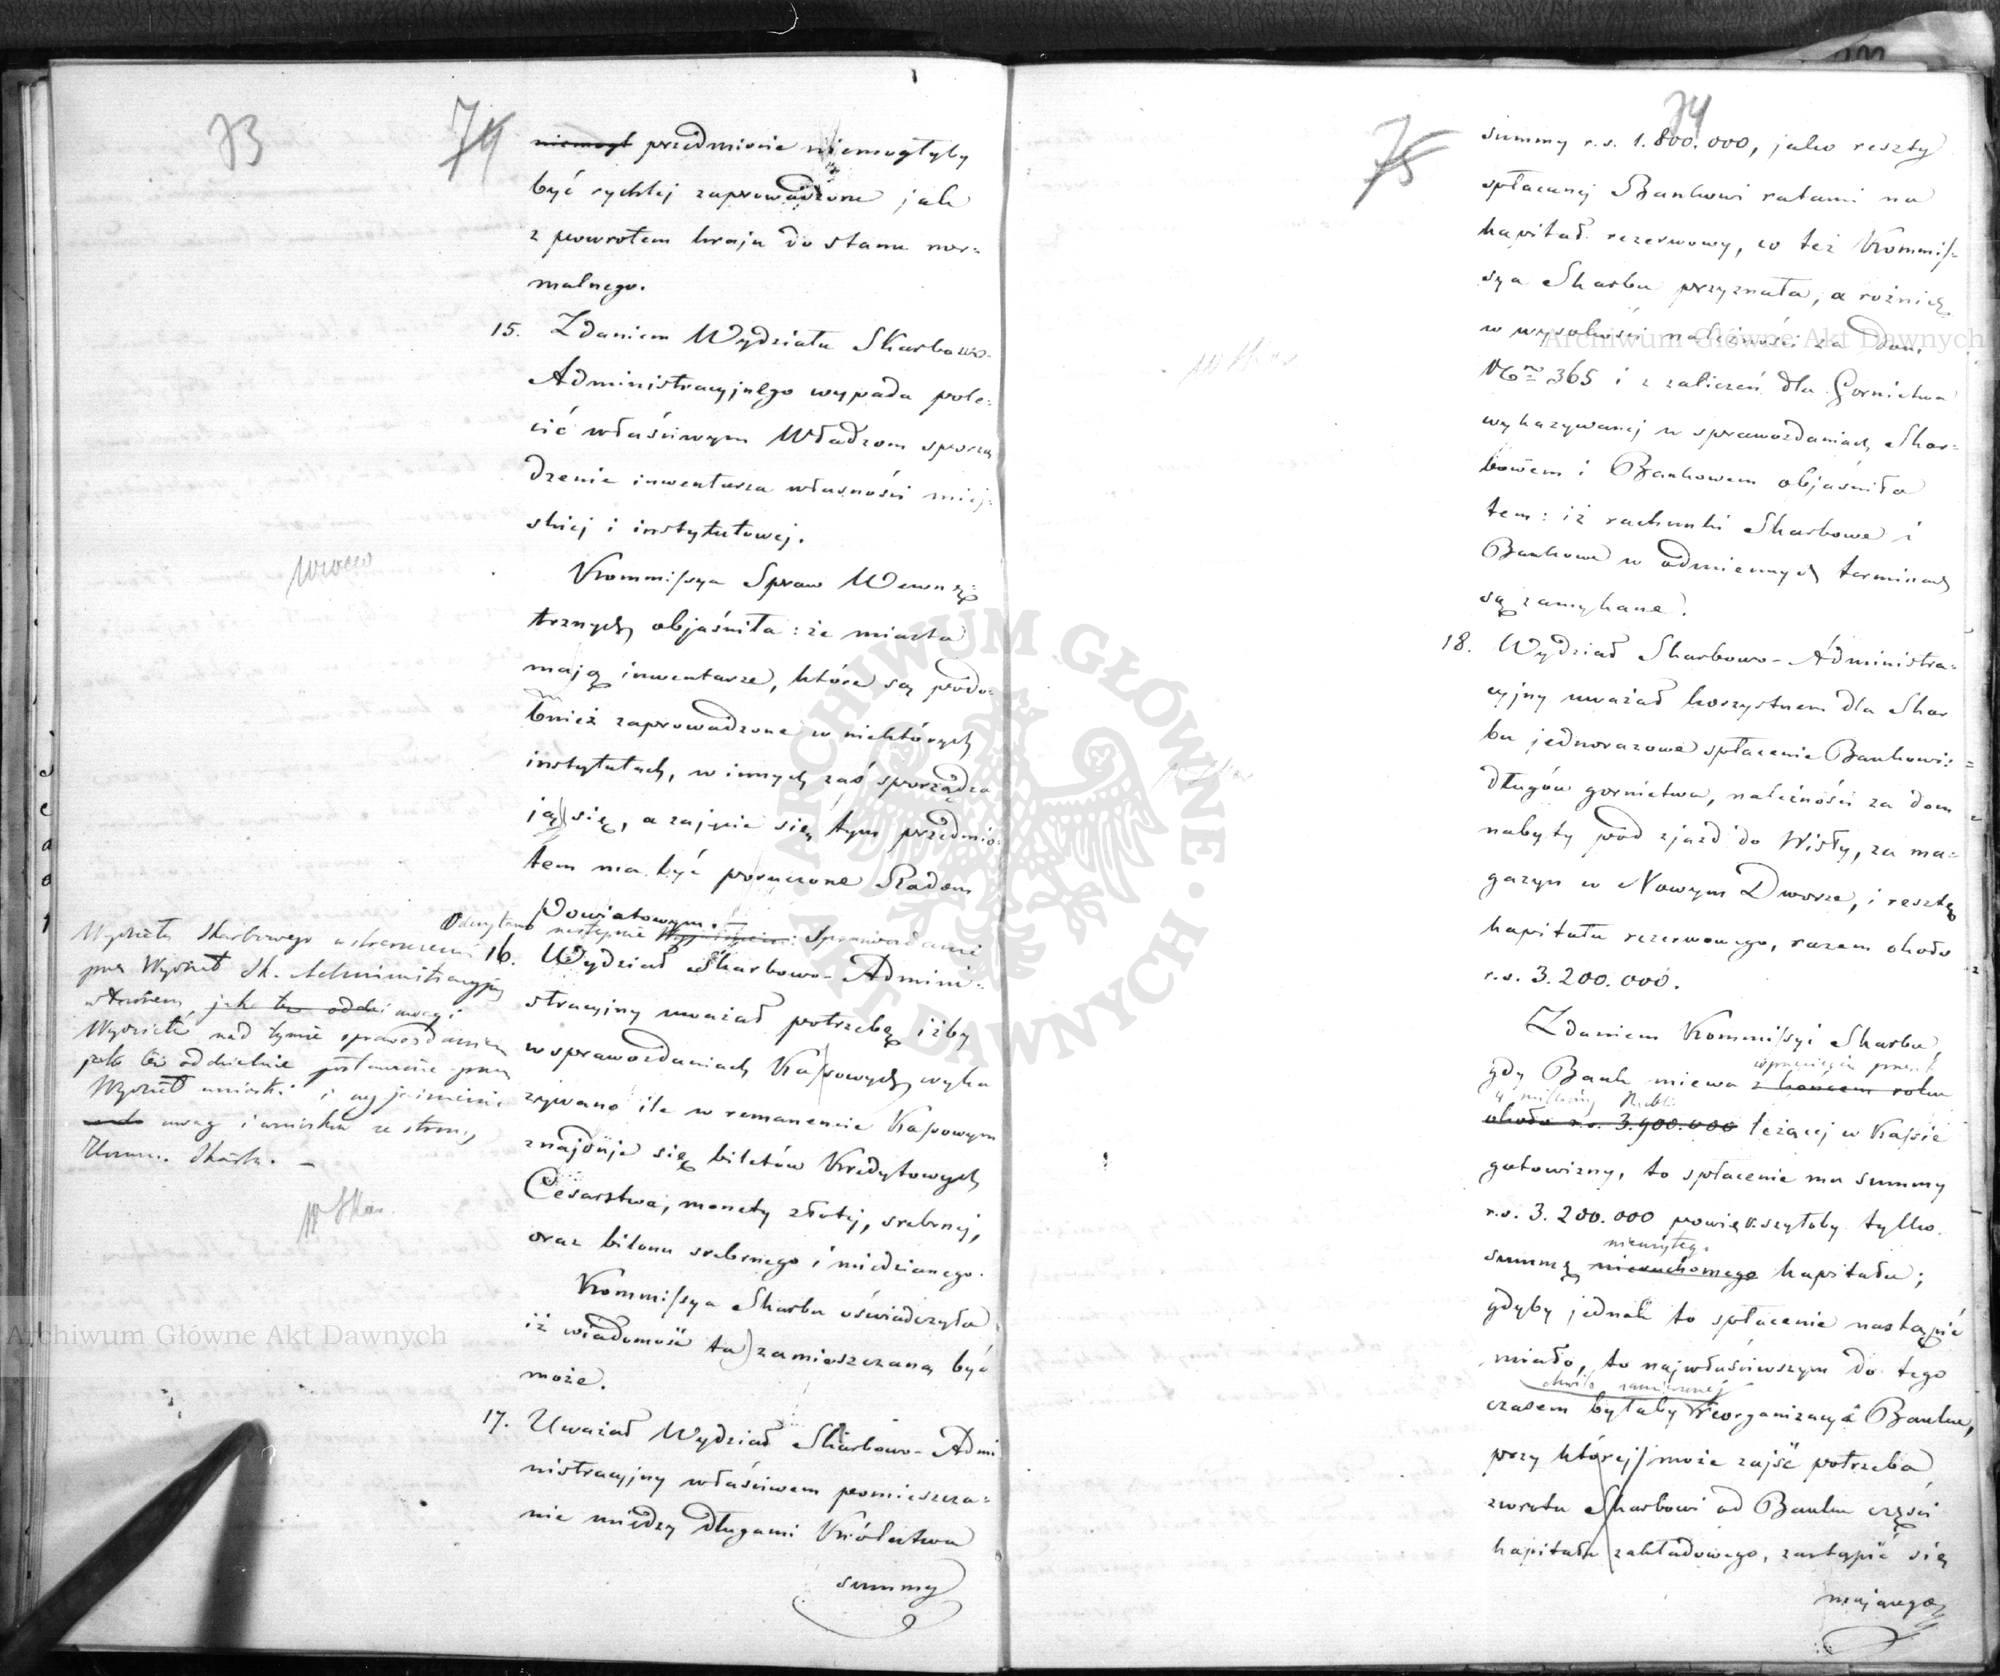 73
74
niemogł przedmiocie niemogłyby
być rychlej zaprowadzone jak
z powrotem kraju do stanu nor=
malnego.
15. Zdaniem Wydziału Skarbowo-
Administracyjnego wypada pole=
cić właściwym Władzom sporzą
dzenie inwentarza własności miej=
skiej i instytutowej.
Kommissya Spraw Wewnę
trznych objaśniła: że miasta
mają inwentarze, które są podo=
bnież zaprowadzone w niektórych
instytutach, w innych zaś sporządza
ją się, a zajęcie się tym przedmio=
tem ma być poruczone Radom
Powiatowym.
Odczytano następnie Sprawozdanie
Wydziału Skarbowego
przez Wydział Sk. Administracyjny
jako też oddzi uwagi
Wydziału nad tymże sprawozdaniem
jako też oddzielnie przez
Wydział wnioski i wyjaśnienia
uwag i wniosków ze strony
Komm. Skarbu. —
16. Wydział Skarbowo-Admini=
stracyjny uważał potrzebę iżby
w sprawozdaniach Kassowych wyka
zywano ile w remanencie Kassowym
znajduje się biletów Kredytowych
Cesarstwa, monety złotej, srebrnej,
oraz bilonu srebrnego i miedzianego.
Kommissya Skarbu oświadczyła
iż wiadomość ta zamieszczaną być
może.
17. Uważał Wydział Skarbowo-Admi
nistracyjny właściwem pomieszcza=
nie między długami Królestwa
summy
W Skar.
74
75
summy r.s. 1.800.000, jako reszty
spłacanej Bankowi ratami na
kapitał rezerwowy, co też Kommis=
sya Skarbu przyznała, a różnicę
w wysokości należności za dom
Nro 365 i z zaliczeń dla Gornictwa
wykazywanej w sprawozdaniach Skar=
bowem i Bankowem objaśniła
tem: iż rachunki Skarbowe i
Bankowe w odmiennych terminach
są zamykane.
18. Wydział Skarbowo-Administra=
cyjny uważał korzystnem dla Skar
bu jednorazowe spłacenie Bankowi:
długów gornictwa, należności za dom
nabyty pod zjazd do Wisły, za ma=
gazyn w Nowym Dworze, i resztę
kapitału rezerwowego, razem około
r.s. 3.200.000.
Zdaniem Kommissyi Skarbu,
gdy Bank miewa z końcem roku
około r.s. 3.900.000 leżącej w Kassie
gotowizny, to spłacenie mu summy
r.s. 3.200.000 powiększyłoby tylko
nieużytego
summę nieruchomego kapitału;
gdyby jednak to spłacenie nastąpić
miało, to najwłaściwszym do tego
czasem byłaby reorganizacya Banku,
przy której może zajść potrzeba
zwrotu Skarbowi od Banku części
kapitału zakładowego, zastąpić się
mającego
Archiwum Główne Akt Dawnych
Archiwum Główne Akt Dawnych
ARCHIWUM GŁÓWNE AKT DAWNYCH